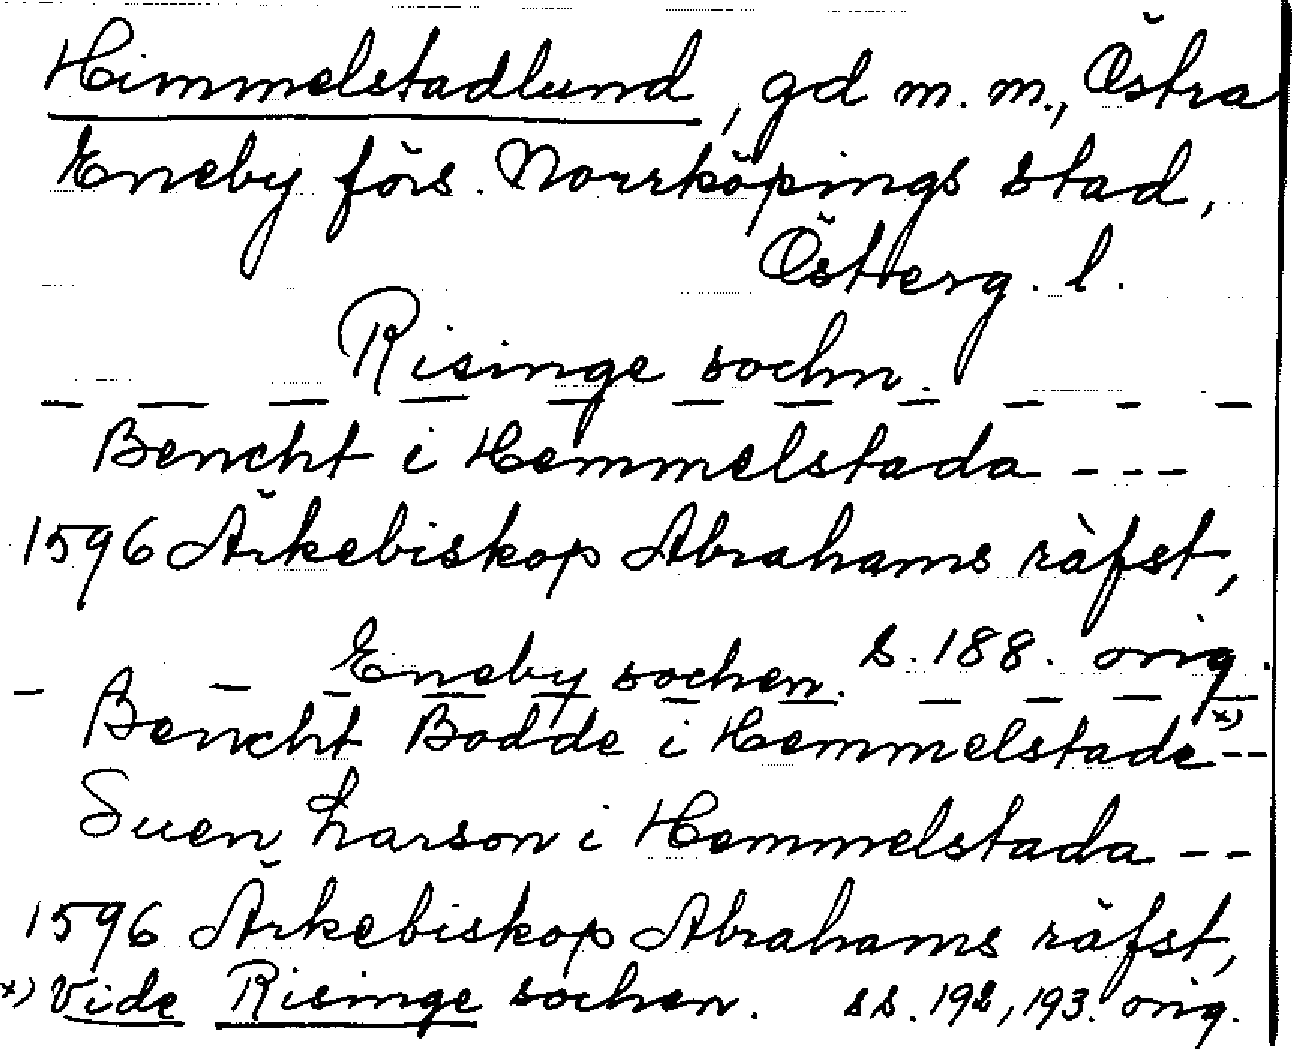 Himmelstadlund, gd m. m., Östra
Eneby förs. Norrköpings stad,
Österg. l.
Risinge sochn.
— — — — — — — — — — —
Bencht i Hemmelstada - - -
1596 Ärkebiskop Abrahams räfst,
s. 188. orig.
Eneby sochen.
— — — — — — — — — —
Bencht Bodde i Hemmelstade x) - -
Suen Larson i Hemmelstada - -
1596 Ärkebiskop Abrahams räfst,
x) Vide Risinge sochen. ss. 192, 193. orig.